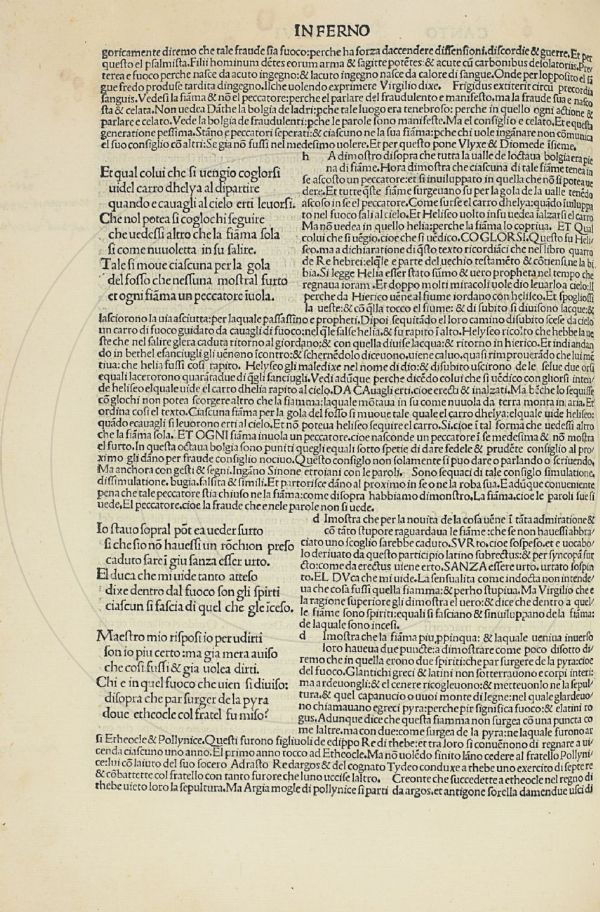 INFERNO
goricamente diremo che tale fraude sia fuoco: perche ha forza daccendere dissensioni, discordie & guerre. Et per
questo el psalmista. Filii hominum dētes eorum arma & sagitte potētes: & acute cū carbonibus desolatoriis. Pre
terea e fuoco perche nasce da acuto ingegno: & lacuto ingegno nasce da calore di sangue. Onde per lopposito el sā
gue fredo produse tardita dingegno. Ilche uolendo exprimere Virgilio dixe. Frigidus extiterit circū precordia
sanguis. Vedesi la fiāma & nō el peccatore: perche el parlare del fraudulento e manifesto, ma la fraude sua e nasco
sta & celata. Non uedea Dāthe la bolgia de ladri: pche tale luogo era tenebroso: perche in quello ogni actione &
parlare e celato. Vede la bolgia de fraudulenti: pche le parole sono manifeste. Ma el consiglio e celato. Et e questa
generatione pessima. Stāno e peccatori seperati: & ciascuno ne la sua fiāma: pche chi uole ingānare non cōmunica
el suo consiglio cō altri: Se gia nō fussi nel medesimo uolere. Et per questo pone Vlyxe & Diomede isieme.
Et qual colui che si uengio coglorsi
uidel carro dhelya al dipartire
quando e cauagli al cielo erti leuorsi.
Che nol potea si coglochi seguire
che uedessi altro che la fiāma sola
si come nuuoletta in su salire.
Tale si moue ciascuna per la gola
del fosso che nessuna mostral furto
et ogni fiāma un peccatore iuola.
h A dimostro disopra che tutta la ualle de loctaua bolgia era pie
na di fiāme. Hora dimostra che ciascuna di tale fiāme tenea in
se ascosto un peccatore: et si inuiluppato in quella che nō si potea ue
dere. Et tutte q̄ste fiāme surgeuano su per la gola de la ualle tenēdo
ascoso in se el peccatore. Come surse el carro dhelya: quādo suiluppa
to nel fuoco sali al cielo. Et Heliseo uolto in su uedea salzarsi el carro
Ma nō uedea in quello helia: perche la fiāma lo copriua. ET Qual
colui che si uēgio, cioe che si uēdico. COGLORSI. Questo fu Heli
seo, ma a dichiaratione di q̄sto texto ricordiāci che nel libro quarto
de Re hebrei: elq̄le e parte del uechio testamēto & cōtiensi ne la bi
bia. Si legge Helia essere stato sōmo & uero propheta nel tempo che
regnaua ioram. Et doppo molti miracoli uole dio leuarlo a cielo: Il
perche da Hierico uēne al fiume iordano con heliseo. Et spogliossi
la ueste: & cō q̄lla tocco el fiume: & di subito si diuisono lacque: &
lasciorono la uia asciutta: per laquale passassino e propheti. Dipoi sequitādo el loro camino disubito scese da cielo
un carro di fuoco guidato da cauagli di fuoco: nel q̄le salse helia, & fu rapito ī alto. Helyseo ricolto che hebbe la ue
ste che nel salire glera caduta ritorno al giordano: & con quella diuise lacqua: & ritorno in hierico. Et indi andan
do in bethel efanciugli gli uēnono īcontro: & schernēdolo diceuono, uiene caluo, qua si rimprouerādo che lui mē
tiua: che helia fussi cosi rapito. Helyseo gli maledixe nel nome di dio: & disubito uscirono de le selue due orsi
equali lacerorono quarātadue di q̄gli fanciugli. Vedi adūque perche dicēdo colui che si uēdico con gliorsi inten
de heliseo elquale uide el carro dhelia rapito al cielo. DA CAuagli erti, cioe erecti & inalzati. Ma bēche lo sequissi
cōglochi non potea scorgere altro che la fiamma: laquale mōtaua in su come nuuola da terra monta in aria. Et
ordina cosi el texto. Ciascuna fiāma per la gola del fosso si muoue tale quale el carro dhelya: elquale uide heliseo:
quādo ecauagli si leuorono erti al cielo. Et nō poteua heliseo sequire el carro. Si, cioe ī tal forma che uedessi altro
che la fiāma sola. ET OGNI fiāma inuola un peccatore, cioe nasconde un peccatore ī se medesima & nō mostra
el furto. In questa octaua bolgia sono puniti quegli equali sotto spetie di dare fedele & prudēte consiglio al pro
ximo gli dāno per fraude consiglio nociuo. Questo consiglio non solamente si puo dare o parlando o scriuendo.
Ma anchora con gesti & segni. Ingāno Sinone etroiani con le paroli. Sono sequaci di tale consiglio simulatione,
dissimulatione, bugia, falsita & simili. Et partorisce dāno al proximo in se o ne la roba sua. E adūque conueniente
pena che tale peccatore stia chiuso ne la fiāma: come disopra habbiamo dimostro. La fiāma, cioe le paroli fue si
uede. El peccatore, cioe la fraude che ne le parole non si uede.
Io stauo sopral pōt ea ueder surto
si che sio nō hauessi un rōchion preso
caduto sare ī giu sanza esser urto.
El duca che mi uide tanto atteso
dixe dentro dal fuoco son gli spirti
ciascun si fascia di quel che gle iceso.
d Imostra che per la nouita de la cosa uēne ī tāta admiratione &
cō tāto stupore raguardaua le fiāme: che se non hauessi abbra
ciato uno scoglio sarebbe caduto. SVRto, cioe sospeso, et e uocabo
lo deriuato da questo participio latino subrectus: & per syncopa sur
cto: come da erectus uiene erto. SANZA essere urto, urtato sospin
to. EL DVca che mi uide. La sensualita come indocta non intende
ua che cosa fussi quella fiamma: & perho stupiua. Ma Virgilio che e
la ragione superiore gli dimostra el uero: & dice che dentro a quel
le fiāme sono spiriti: equali si fasciano & sinuiluppano de la fiāma:
de laquale sono incesi.
Maestro mio risposi io per udirti
son io piu certo: ma gia mera auiso
che cosi fussi & gia uolea dirti.
Chi e in quel fuoco che uien si diuiso:
disopra che par surger de la pyra
doue etheocle col fratel fu miso?
d Imostra che la fiāma piu ppinqua: & laquale ueniua inuerso
loro haueua due puncte: a dimostrare come poco disotto di
remo che in quella erono due spiriti: che par surgere de la pyra: cioe
del fuoco. Glantichi greci & latini non sotterrauono e corpi interi:
ma ardeuongli: & el cenere ricoglieuono: & metteuonlo ne la sepul
tura, & quel capanuccio o uuoi monte di legne: nel quale glardeuo
no chiamauano egreci pyra: perche pir significa fuoco: & elatini ro
gus. Adunque dice che questa fiamma non surgea cō una puncta co
me laltre, ma con due: come surgea de la pyra: ne laquale furono ar
si Etheocle & Pollynice. Questi furono figliuoli de edippo Re di thebe: et tra loro si conuēnono di regnare a ui
cenda ciascuno uno anno. El primo anno tocco ad Etheocle. Ma nō uolēdo finito lāno cedere al fratello Pollyni
ce: lui cō laiuto del suo socero Adrasto Re dargos & del cognato Tydeo conduxe a thebe uno exercito di septe re
& cōbattette col fratello con tanto furore che luno uccise laltro. Creonte che succedette a etheocle nel regno di
thebe uieto loro la sepultura. Ma Argia mogle di pollynice si parti da argos, et antigone sorella damendue usci di